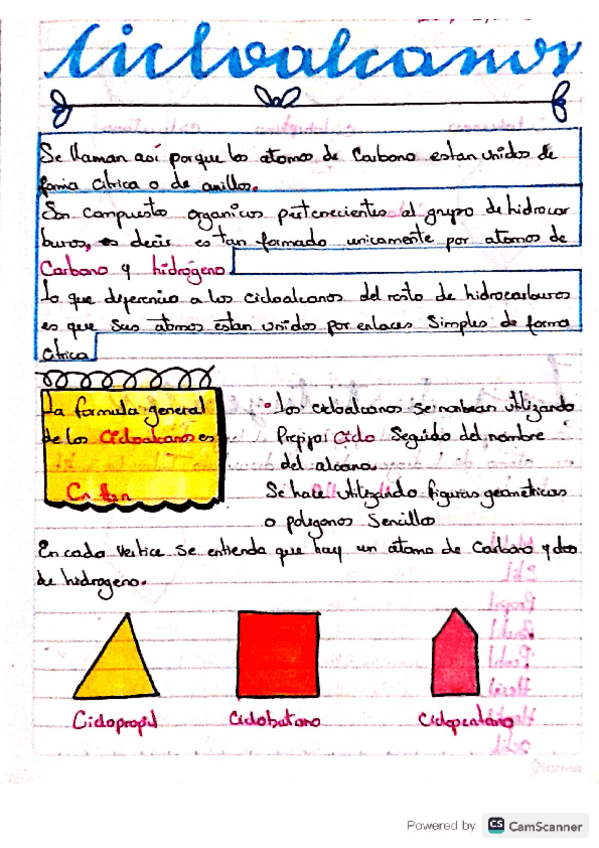 Cicloalcanos
Se llaman así porque los atomos de Carbono estan unidos de
forma citrica o de anillos.
Son compuestos organicos pertenecientes al grupo de hidrocar
buros, es decir estan formado unicamente por atomos de
Carbono y hidrógeno
lo que diferencia a los cicloalcanos del resto de hidrocarburos
es que sus atomos estan unidos por enlaces simples de forma
citrica
La formula general
de los Cicloalcanos es
Cn
• Los cicloalcanos se nombran utilizando
Prefijo Ciclo Seguido del nombre
del alcano.
Se hace utilizando figuras geometricas
o poligonos Sencillos
En cada vertice se entiende que hay un atomo de Carbono y dos
de hidrogeno.
Ciclopropil
Ciclobutano
Ciclopentano
Powered by CS CamScanner